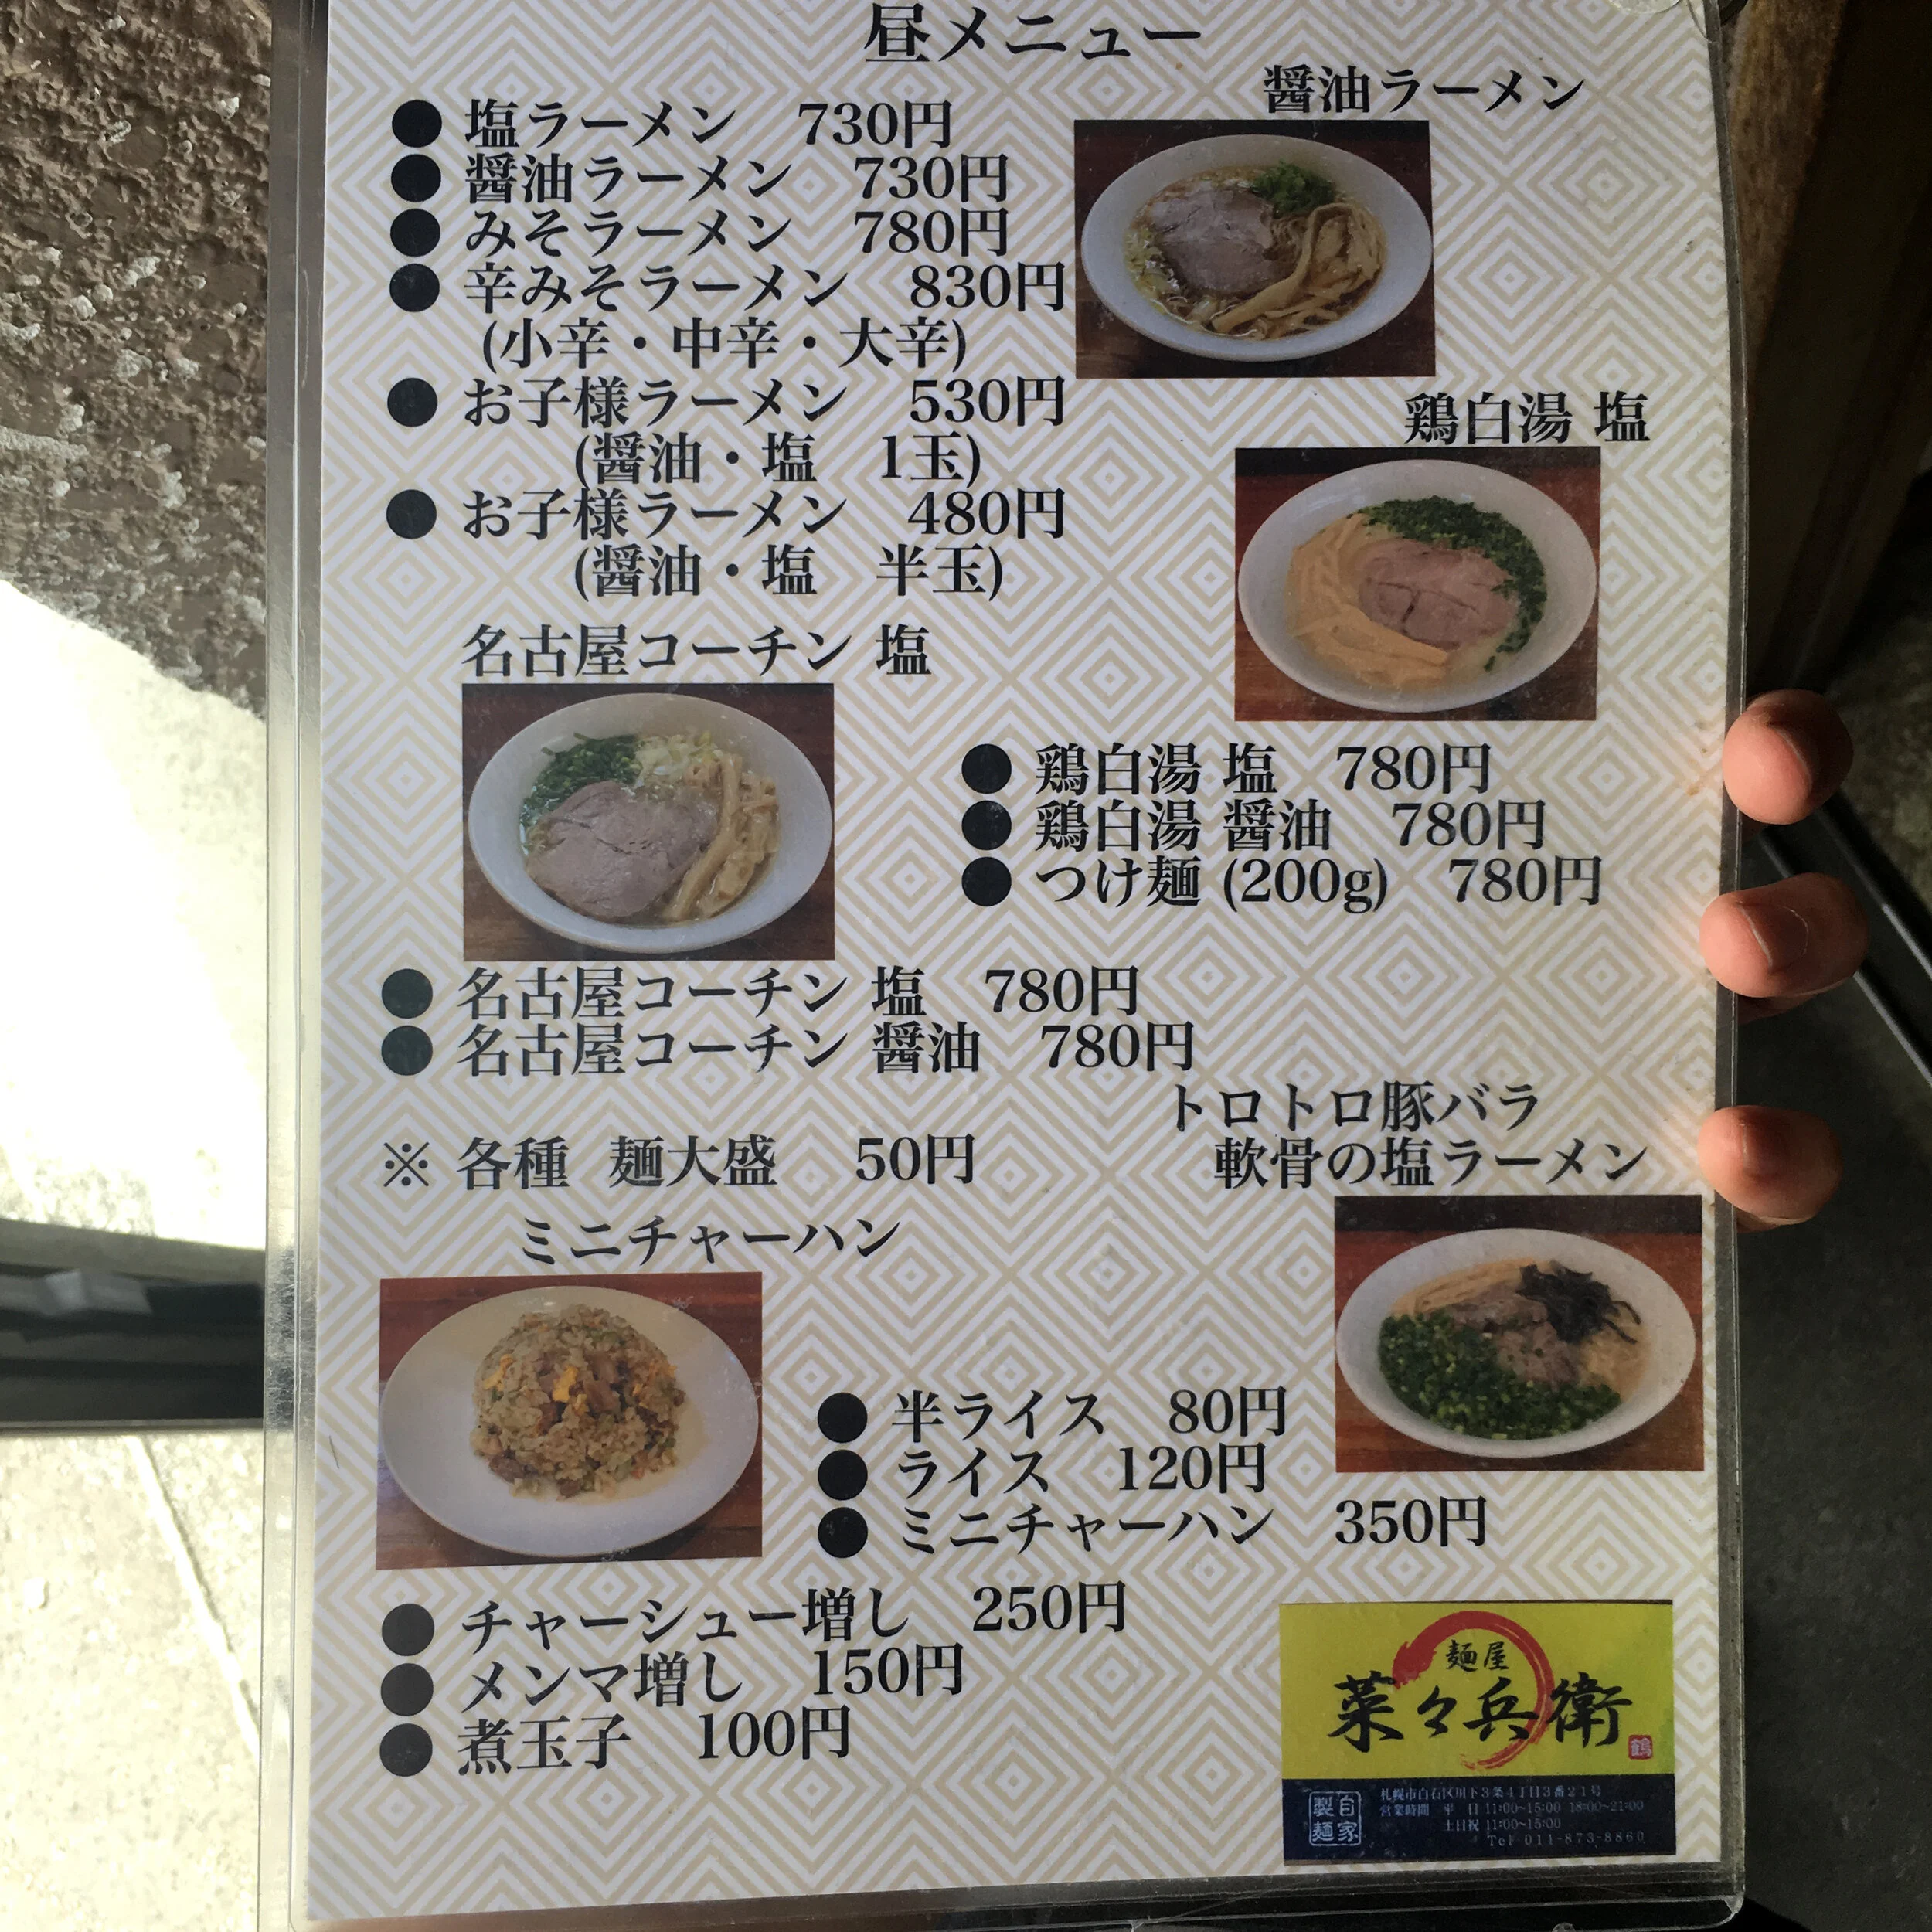 昼メニュー
醤油ラーメン
● 塩ラーメン 730円
● 醤油ラーメン 730円
● みそラーメン 780円
● 辛みそラーメン 830円
(小辛・中辛・大辛)
● お子様ラーメン 530円
(醤油・塩 1玉)
● お子様ラーメン 480円
(醤油・塩 半玉)
鶏白湯 塩
名古屋コーチン 塩
● 鶏白湯 塩 780円
● 鶏白湯 醤油 780円
● つけ麺 (200g) 780円
● 名古屋コーチン 塩 780円
● 名古屋コーチン 醤油 780円
トロトロ豚バラ
軟骨の塩ラーメン
※ 各種 麺大盛 50円
ミニチャーハン
● 半ライス 80円
● ライス 120円
● ミニチャーハン 350円
● チャーシュー増し 250円
● メンマ増し 150円
● 煮玉子 100円
麺屋
菜々兵衛
鶴
自家
製麺
札幌市白石区川下3条4丁目3番21号
営業時間 平 日 11:00~15:00 18:00~21:00
土日祝 11:00~15:00
Tel 011-873-8860